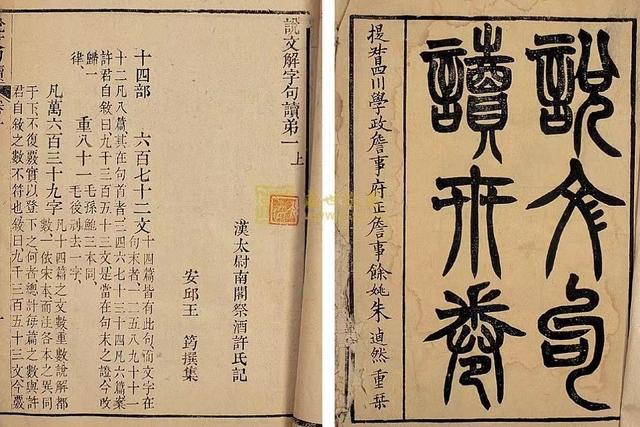 說文句
讀卅卷
提督四川學政詹事府正詹事餘姚朱逌然重栞
說文解字句讀弟一上
漢太尉南閣祭酒許氏記
安邱王 筠撰集
十四部 六百七十二文 十四篇皆有此句而文字在句末者一二五八九十十一
十二凡八篇其在句首者三四六七十三十四凡六篇案
許君自敘曰九千三百五十三文是當在句末之證今改
歸一
律
重八十一 毛孫鮑三本同毛後剜去一字
凡萬六百三十九字 凡十四篇之文數重數說解都數一依宋本而注各本之異同
于下不復覈實以登下之何者總計每篇之數與許
君自敘之數不符也敘曰九千三百五十三文今覈